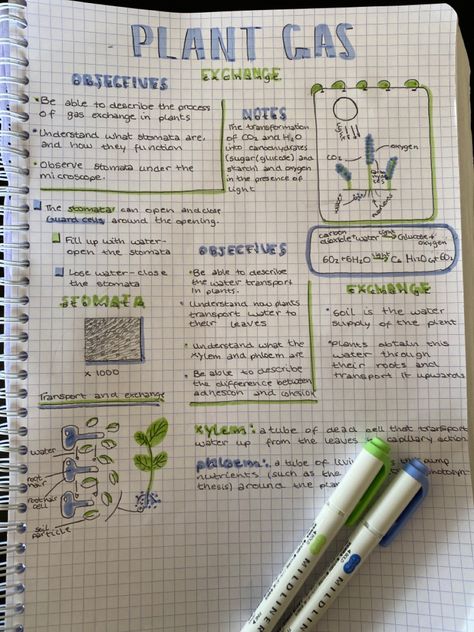 PLANT GAS
EXCHANGE
OBJECTIVES
• Be able to describe the process
of gas exchange in plants
• Understand what stomata are
and how they function
• Observe stomata under the
microscope.
NOTES
The transformation
of CO2 and H2O
into carbohydrates
(sugar(glucose) and
starch) and oxygen
in the presence of
light
light
CO2
oxygen
water
The stomata can open and close
Guard cells around the opening.
Fill up with water-
open the stomata
Lose water-close
the stomata
carbon
dioxide+water
light
Glucose+
oxygen
6O2+6H2O
light
C6 H12O6+6O2
STOMATA
x 1000
OBJECTIVES
• Be able to describe
the water transport
in plants.
• Understand how plants
transport water to
their leaves
• Understand what the
xylem and phloem are
• Be able to describe
the difference between
adhesion and cohesion
EXCHANGE
• soil is the water
supply of the plant
• Plants obtain this
water through
their roots and
transport it upwards
Transport and exchange
water
root
hair
root hair
cell
soil
particle
xylem: a tube of dead cell that transport
water up from the leaves
capillary action
phloem: a tube of
nutrients (such as
thesis) around the
MILDLINER
MILDLINER